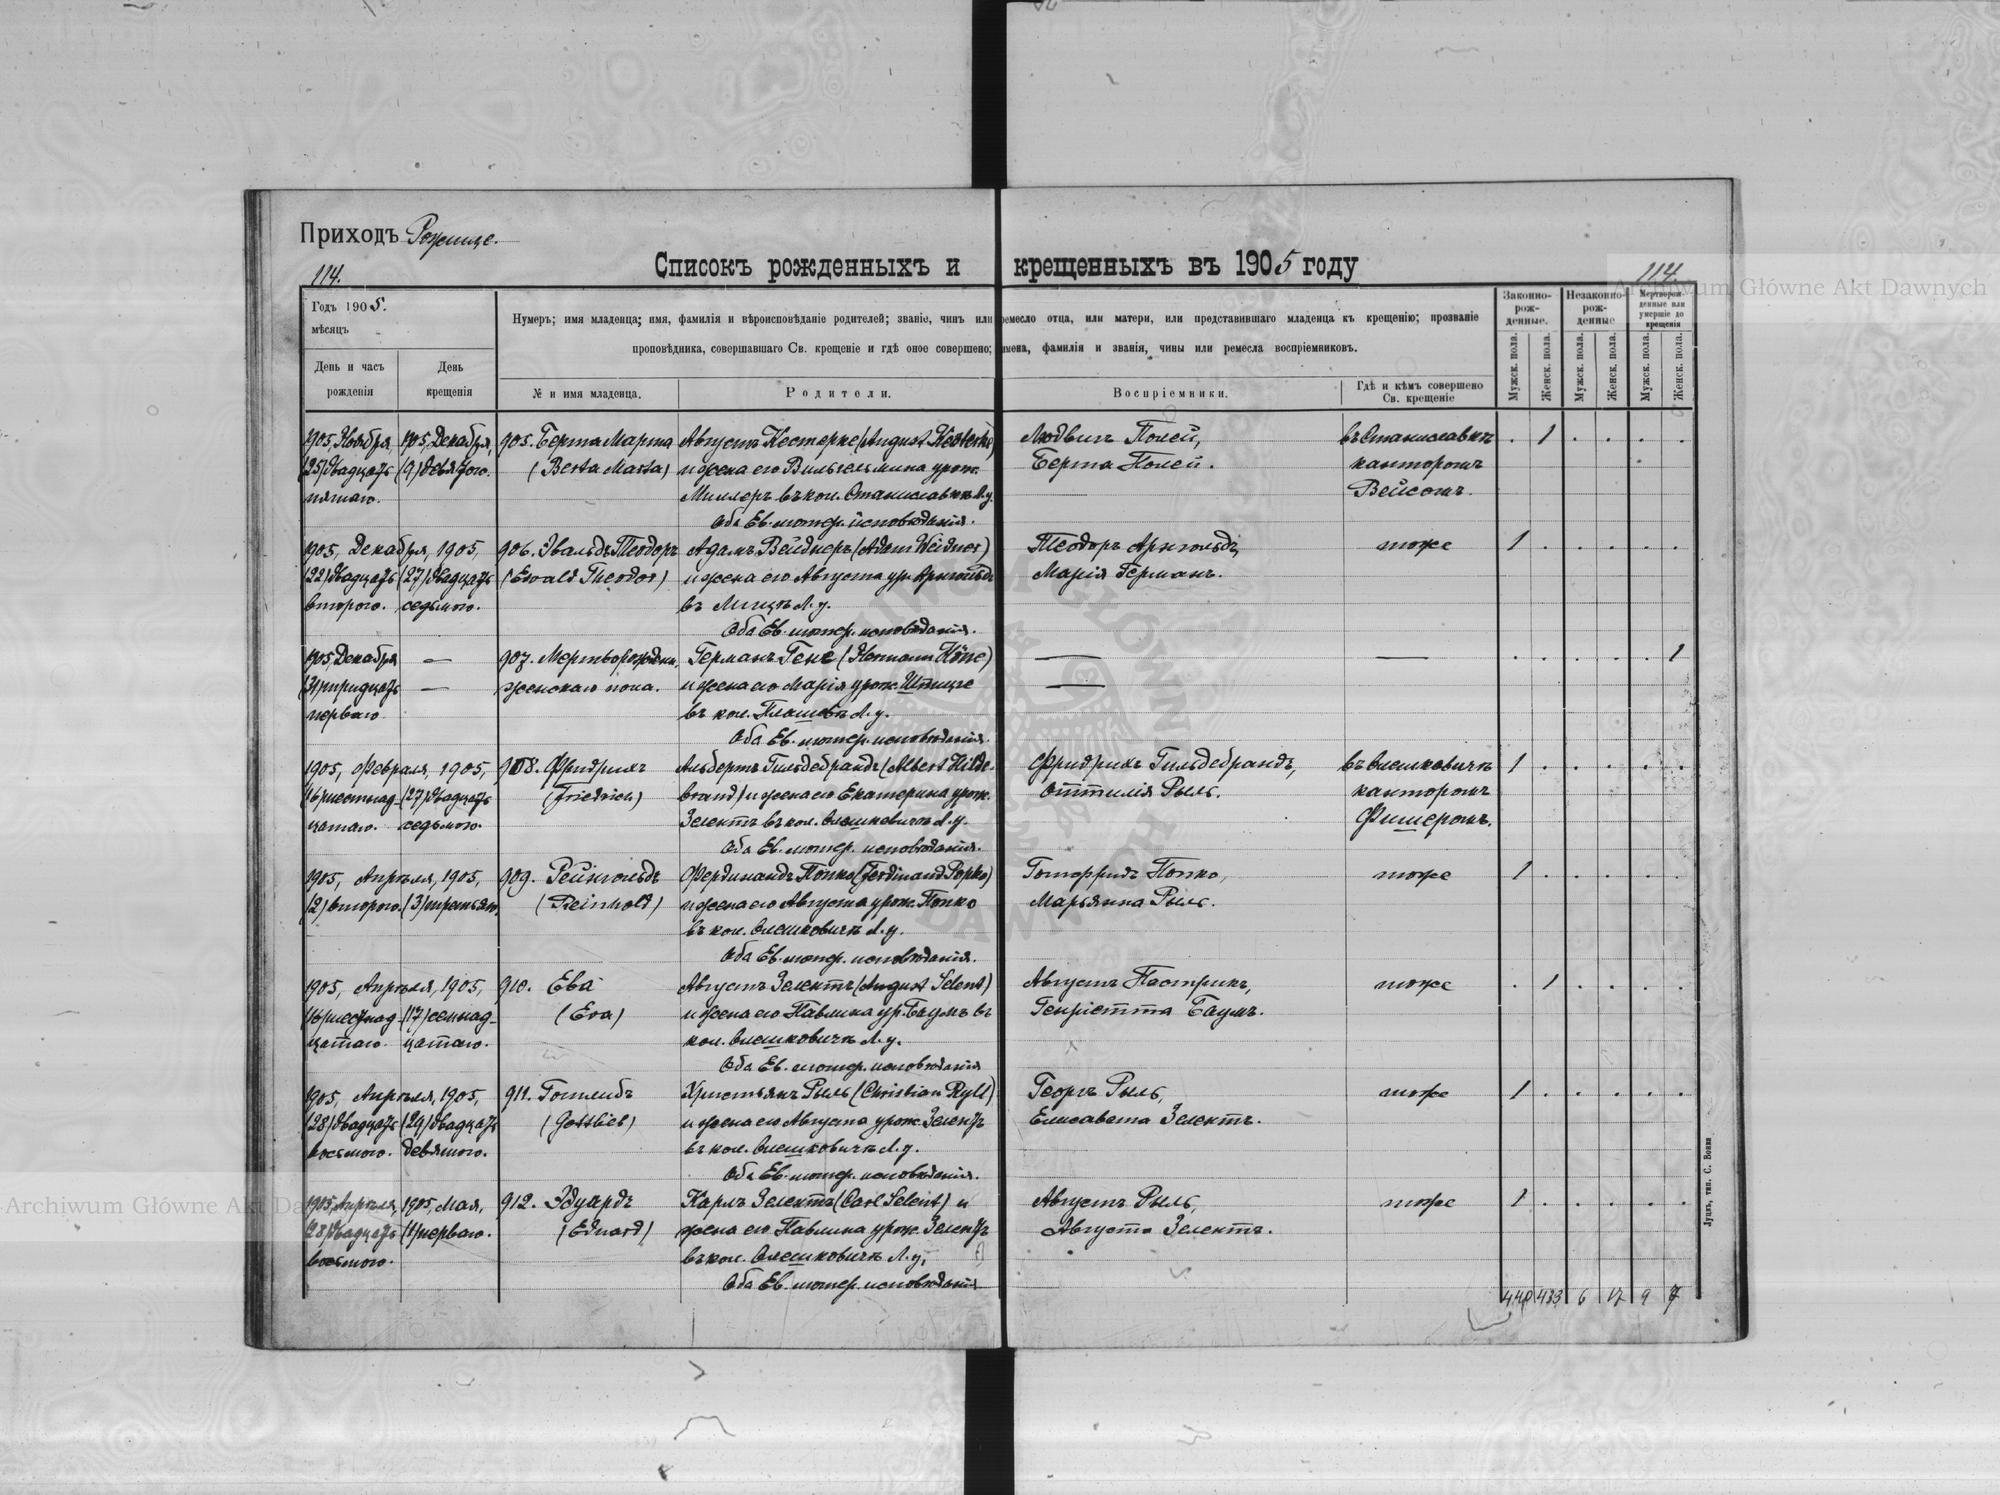 Приходъ Рожище.
114.
Списокъ рожденныхъ и крещенныхъ въ 1905 году
114.
Годъ 1905.
мѣсяцъ
Нумеръ; имя младенца; имя, фамилія и вѣроисповѣданіе родителей; званіе, чинъ или ремесло отца, или матери, или представившаго младенца къ крещенію; прозваніе
проповѣдника, совершавшаго Св. крещеніе и гдѣ оное совершено; имена, фамилія и званія, чины или ремесла воспріемниковъ.
Законно-
рож-
денные.
Незаконно-
рож-
денные
Мертворож-
денные или
умершіе до
крещенія
День и часъ
рожденія
День
крещенія
№ и имя младенца.
Родители.
Воспріемники.
Гдѣ и кѣмъ совершено
Св. крещеніе
Мужск. пола.
Женск. пола.
Мужск. пола.
Женск. пола.
Мужск. пола.
Женск. пола.
1905, Ноября, 1905, Декабря, 905. Берта Марта Августъ Кестерке (August Kesterke) Людвигъ Полей, въ Станиславкѣ . 1 . . . .
(25) двадцать (9) девятого. (Berta Marta) и жена его Вильгельмина урож. Берта Полей. канторомъ
пятаго. Миллеръ въ кол. Станиславкѣ Л.у. Вейсомъ.
Оба Ев. лютер. исповѣданія.
1905, Декабря, 1905, 906. Эвальдъ Теодоръ Адамъ Вейднеръ (Adam Weidner) Теодоръ Арнгольдъ, тоже 1 . . . . .
(22) двадцать (27) двадцать (Ewald Theodor) и жена его Августа ур. Арнгольдъ Марія Германъ.
второго. седьмого. въ Луцкѣ Л.у.
Оба Ев. лютер. исповѣданія.
1905, Декабря — 907. Мертворожден. Германъ Гене (Hermann Höne) — — . . . . . 1
(31) тридцать — женскаго пола. и жена его Марія урож. Шпицге —
перваго въ кол. Л.у.
Оба Ев. лютер. исповѣданія.
1905, Февраля, 1905, 908. Фридрихъ Альбертъ Гильдебрандъ (Albert Hilde- Фридрихъ Гильдебрандъ, въ Олешковичѣ 1 . . . . .
(16) шестнад- (27) двадцать (Friedrich) brand) и жена его Екатерина урож. Оттилія Рыль. канторомъ
цатаго. седьмого. Зелентъ въ кол. Олешковичѣ Л.у. Фишеромъ.
Оба Ев. лютер. исповѣданія.
1905, Апрѣля, 1905, 909. Рейнгольдъ Фердинандъ Попко (Ferdinand Popko) Готфридъ Попко, тоже 1 . . . . .
(2) второго. (3) третьяго. (Reinhold) и жена его Августа урож. Попко Марьянна Рыль.
въ кол. Олешковичѣ Л.у.
Оба Ев. лютер. исповѣданія.
1905, Апрѣля, 1905, 910. Ева Августъ Зелентъ (August Selent) Августъ Пастрикъ, тоже . 1 . . . .
(16) шестнад- (17) семнад- (Eva) и жена его Павлина ур. Баумъ въ Генріетта Баумъ.
цатаго. цатаго. кол. Олешковичѣ Л.у.
Оба Ев. лютер. исповѣданія
1905, Апрѣля, 1905, 911. Готлибъ Христьянъ Рыль (Christian Ryll) Георгъ Рыль, тоже 1 . . . . .
(28) двадцать (29) двадцать (Gottlieb) и жена его Августа урож. Зелентъ Елисавета Зелентъ.
восьмого. девятого. въ кол. Олешковичѣ Л.у.
Оба Ев. лютер. исповѣданія.
1905, Апрѣля, 1905, Мая, 912. Эдуардъ Карлъ Зелентъ (Carl Selent) и Августъ Рыль, тоже 1 . . . . .
(28) двадцать (1) перваго. (Eduard) жена его Павлина урож. Зелентъ Августа Зелентъ.
восьмого. въ кол. Олешковичѣ Л.у.
Оба Ев. лютер. исповѣданія
440 433 6 17 9 7
Луцкъ, тип. С. Бокки
Archiwum Główne Akt Dawnych
Archiwum Główne Akt Dawnych